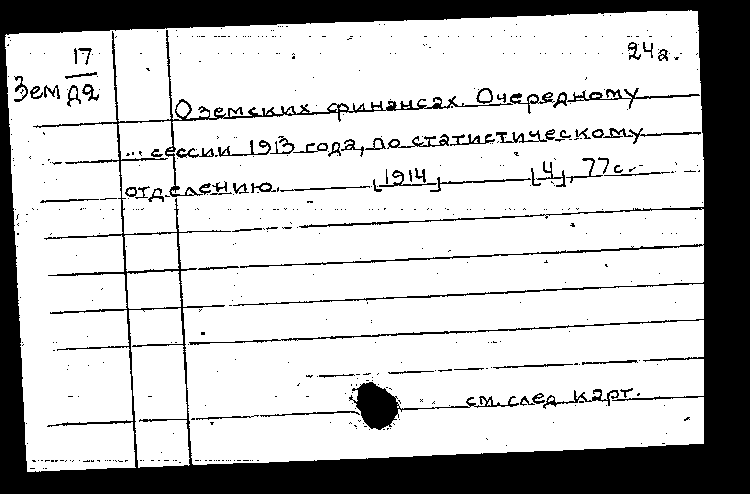 17
24а.
Зем Д2
О земских финансах. Очередному
... сессии 1913 года, по статистическому
отделению. [1914] [4], 77с.
см. след карт.